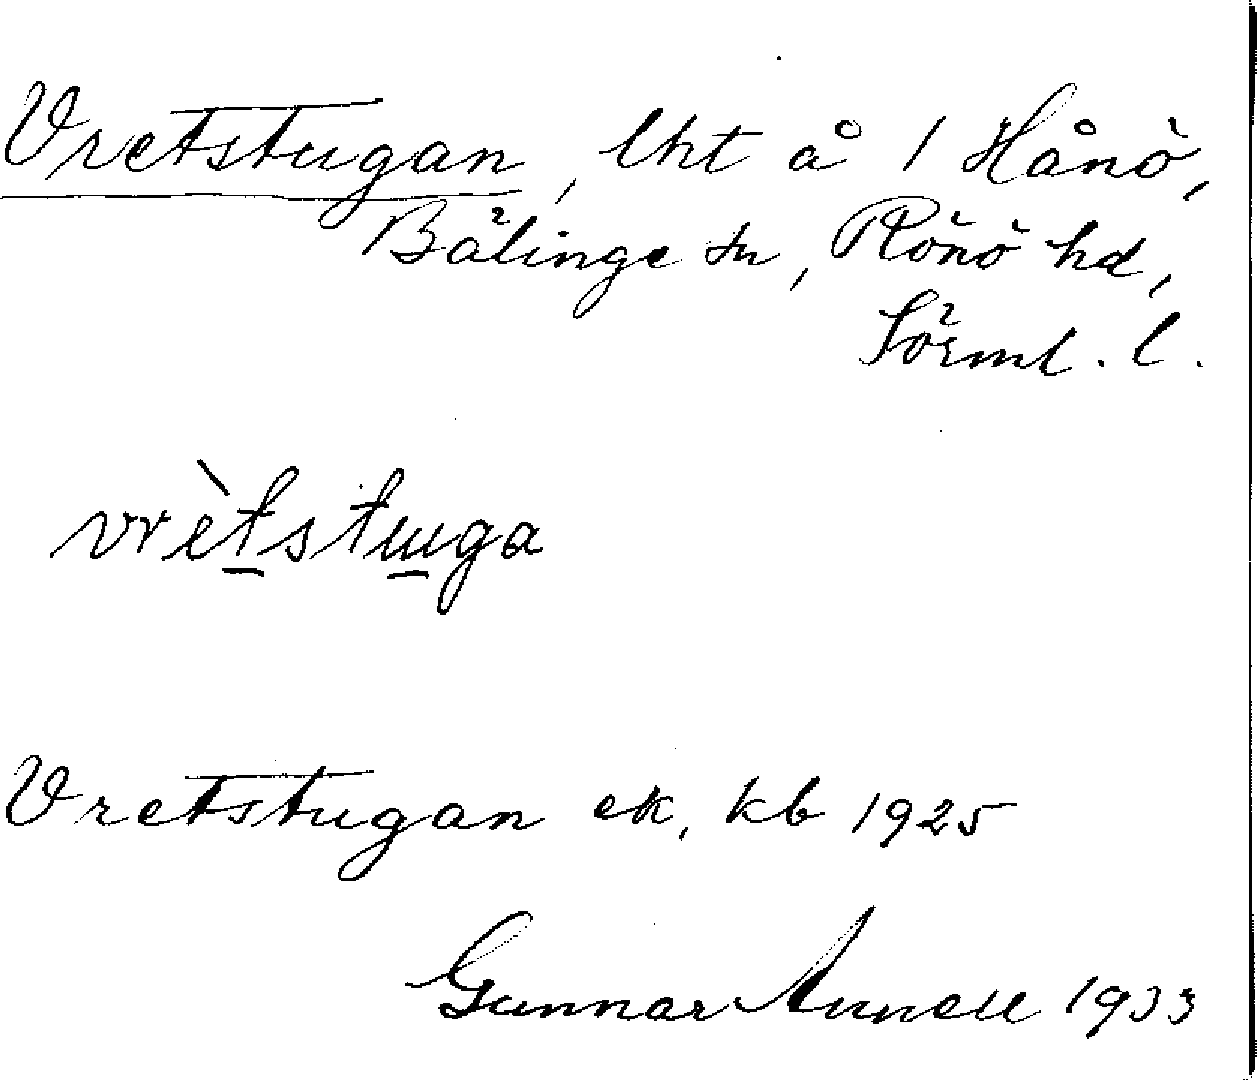 Vretstugan, lht å 1 Hånö,
Bälinge sn, Rönö hd,
Sörml. l.
vrètstuga
Vretstugan ek, kb 1925
Gunnar Annell 1933